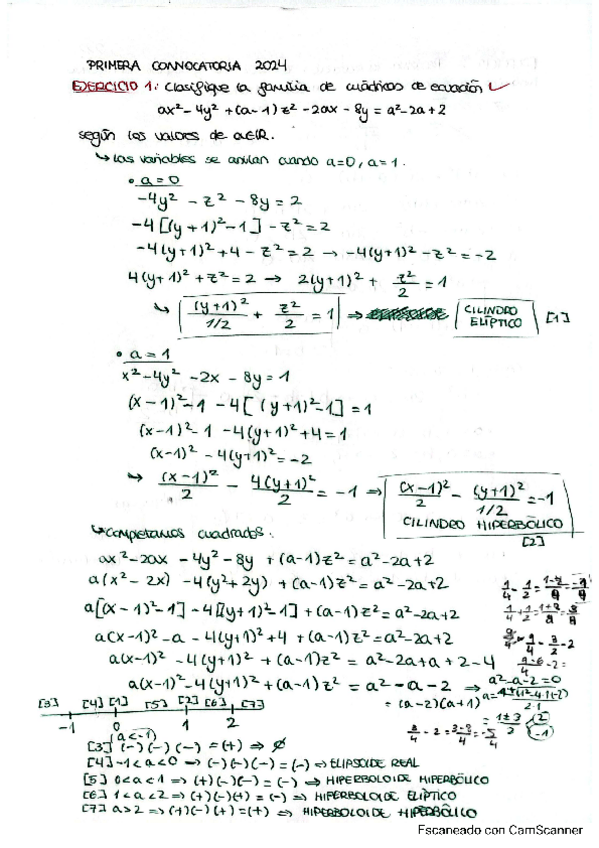 PRIMERA CONVOCATORIA 2024
EJERCICIO 1: Clasifique la familia de cuádricas de ecuación
ax² - 4y² + (a-1)z² - 2ax - 8y = a² - 2a + 2
según los valores de a∈ℝ.
↳ Las variables se anulan cuando a=0, a=1.
• a=0
-4y² - z² - 8y = 2
-4[(y+1)²-1] - z² = 2
-4(y+1)² + 4 - z² = 2 → -4(y+1)² - z² = -2
4(y+1)² + z² = 2 → 2(y+1)² + z²/2 = 1
↳ (y+1)²/1/2 + z²/2 = 1 ⇒ CILINDRO ELÍPTICO [1]
• a=1
x² - 4y² - 2x - 8y = 1
(x-1)² - 1 - 4[(y+1)²-1] = 1
(x-1)² - 1 - 4(y+1)² + 4 = 1
(x-1)² - 4(y+1)² = -2
↳ (x-1)²/2 - 4(y+1)²/2 = -1 ⇒ (x-1)²/2 - (y+1)²/1/2 = -1
CILINDRO HIPERBÓLICO
[2]
↳ Completamos cuadrados.
ax² - 2ax - 4y² - 8y + (a-1)z² = a² - 2a + 2
a(x² - 2x) - 4(y² + 2y) + (a-1)z² = a² - 2a + 2
a[(x-1)²-1] - 4[(y+1)²-1] + (a-1)z² = a² - 2a + 2
a(x-1)² - a - 4(y+1)² + 4 + (a-1)z² = a² - 2a + 2
a(x-1)² - 4(y+1)² + (a-1)z² = a² - 2a + a + 2 - 4
a(x-1)² - 4(y+1)² + (a-1)z² = a² - a - 2 ⇒ a² - a - 2 = 0
= (a-2)(a+1)
= 1±3/2
2
-1
[3] [4] [1] [5] [2] [6] [7]
-1 0 1 2
(a<-1)
[3] (-)(-)(-) = (+) ⇒ ∅
[4] -1<a<0 ⇒ (-)(-)(-) = (-) ⇒ ELIPSOIDE REAL
[5] 0<a<1 ⇒ (+)(-)(-) = (-) ⇒ HIPERBOLOIDE HIPERBÓLICO
[6] 1<a<2 ⇒ (+)(-)(+) = (-) ⇒ HIPERBOLOIDE ELÍPTICO
[7] a>2 ⇒ (+)(-)(+) = (+) ⇒ HIPERBOLOIDE HIPERBÓLICO
Escaneado con CamScanner